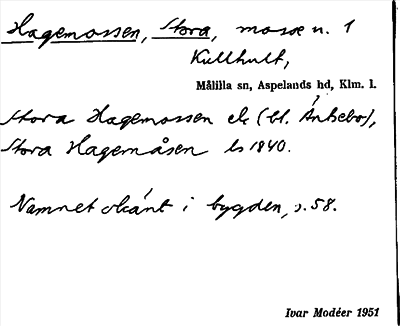 Hagemossen, Stora, mosse n. 1
Kullhult,
Målilla sn, Aspelands hd, Klm. l.
Stora Hagemossen ek (bl. Änkebo),
Stora Hagemåsen ls 1840.
Namnet okänt i bygden, s. 58.
Ivar Modéer 1951